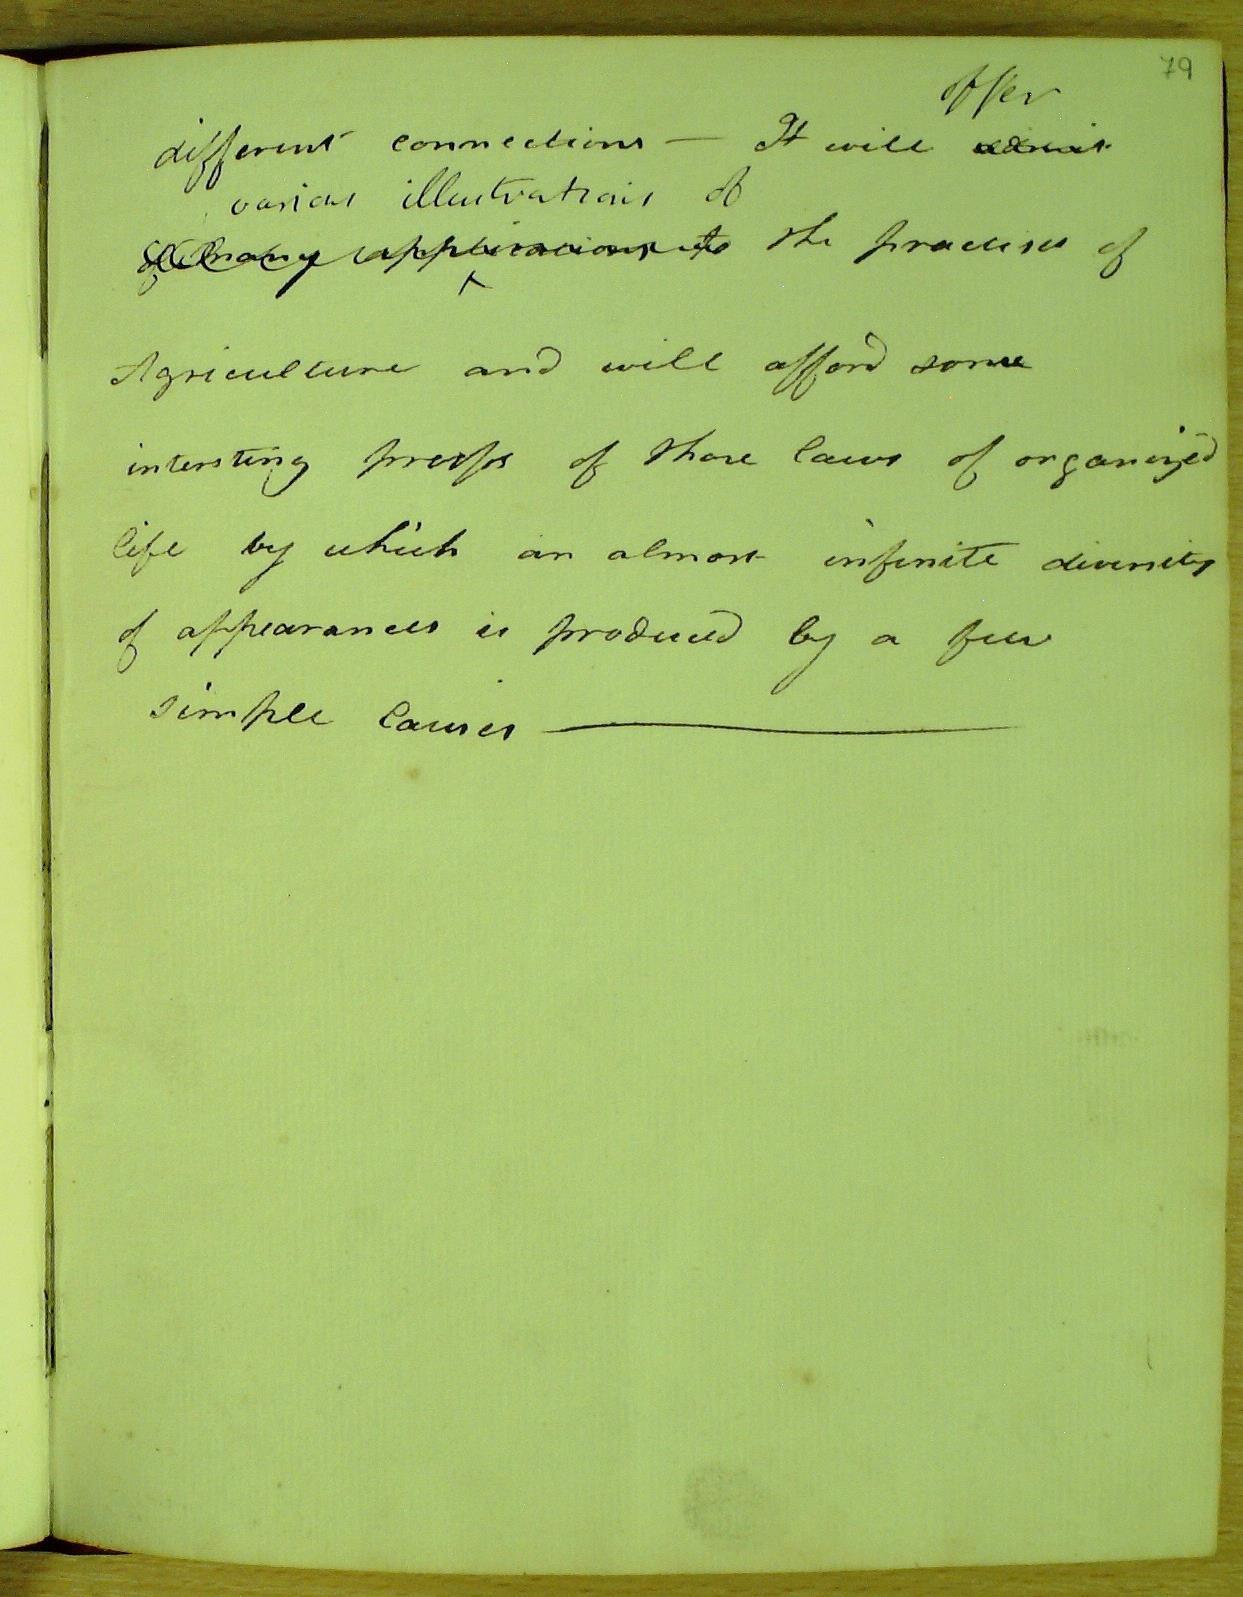 79
offer
different connections — It will admit
various illustrations of
of many applications to the practises of
Agriculture and will afford some
intersting proofs of those laws of organized
life by which an almost infinite diversity
of appearances is produced by a few
simple causes —